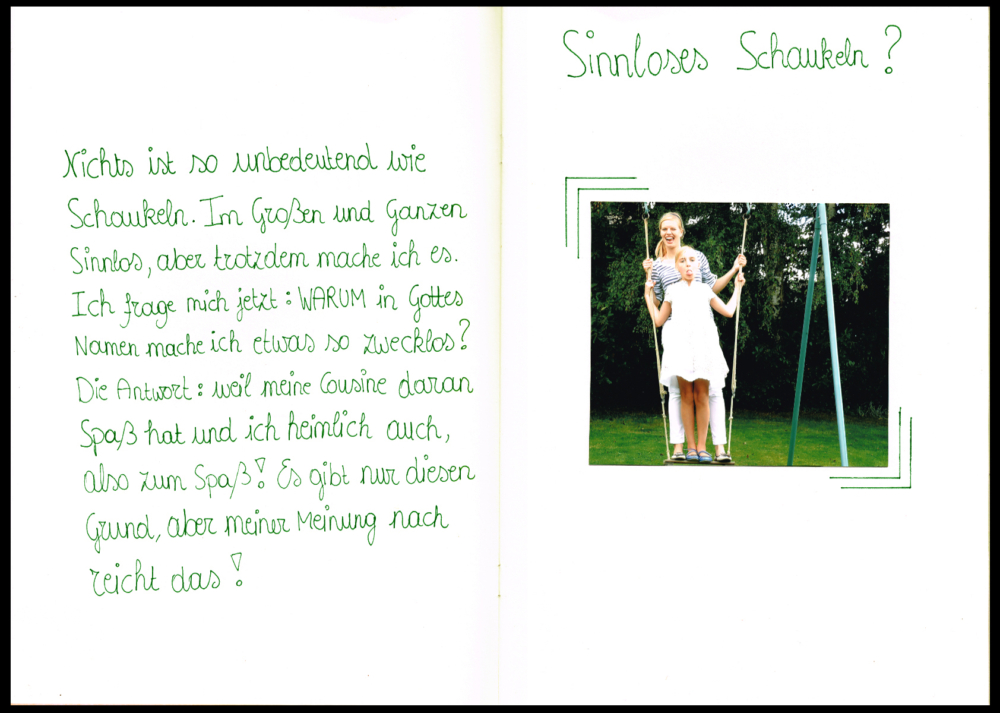 Nichts ist so unbedeutend wie
Schaukeln. Im Großen und Ganzen
Sinnlos, aber trotzdem mache ich es.
Ich frage mich jetzt: WARUM in Gottes
Namen mache ich etwas so zwecklos?
Die Antwort: weil meine Cousine daran
Spaß hat und ich heimlich auch,
also zum Spaß! Es gibt nur diesen
Grund, aber meiner Meinung nach
reicht das!
Sinnloses Schaukeln?